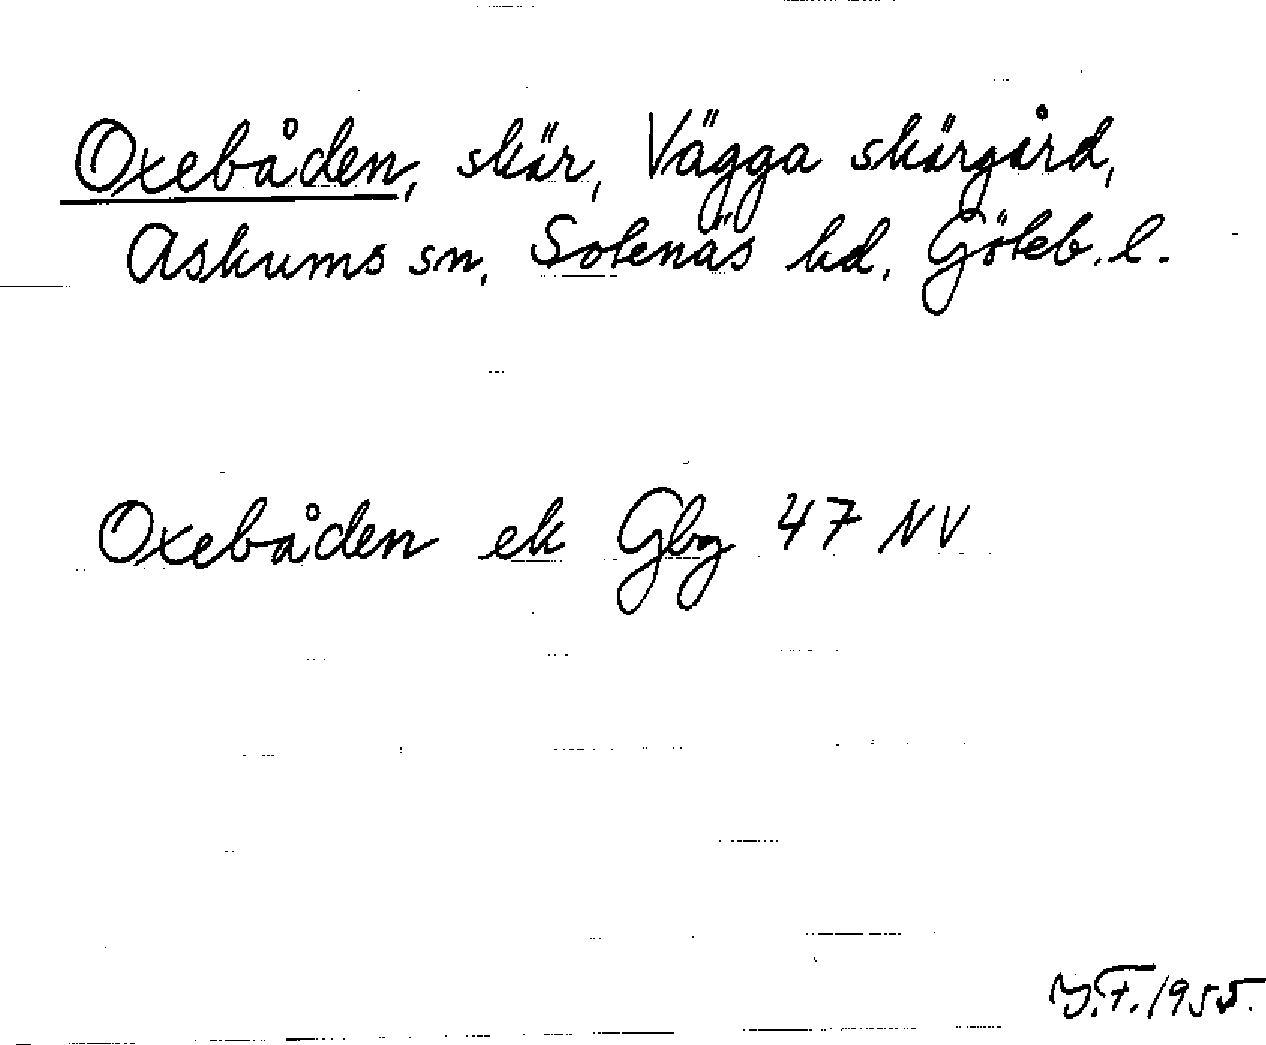 Oxebåden, skär, Vägga skärgård,
Askums sn, Sotenäs hd, Göteb. l.
Oxebåden ek Gbg 47 NV
Y.F. 1955.